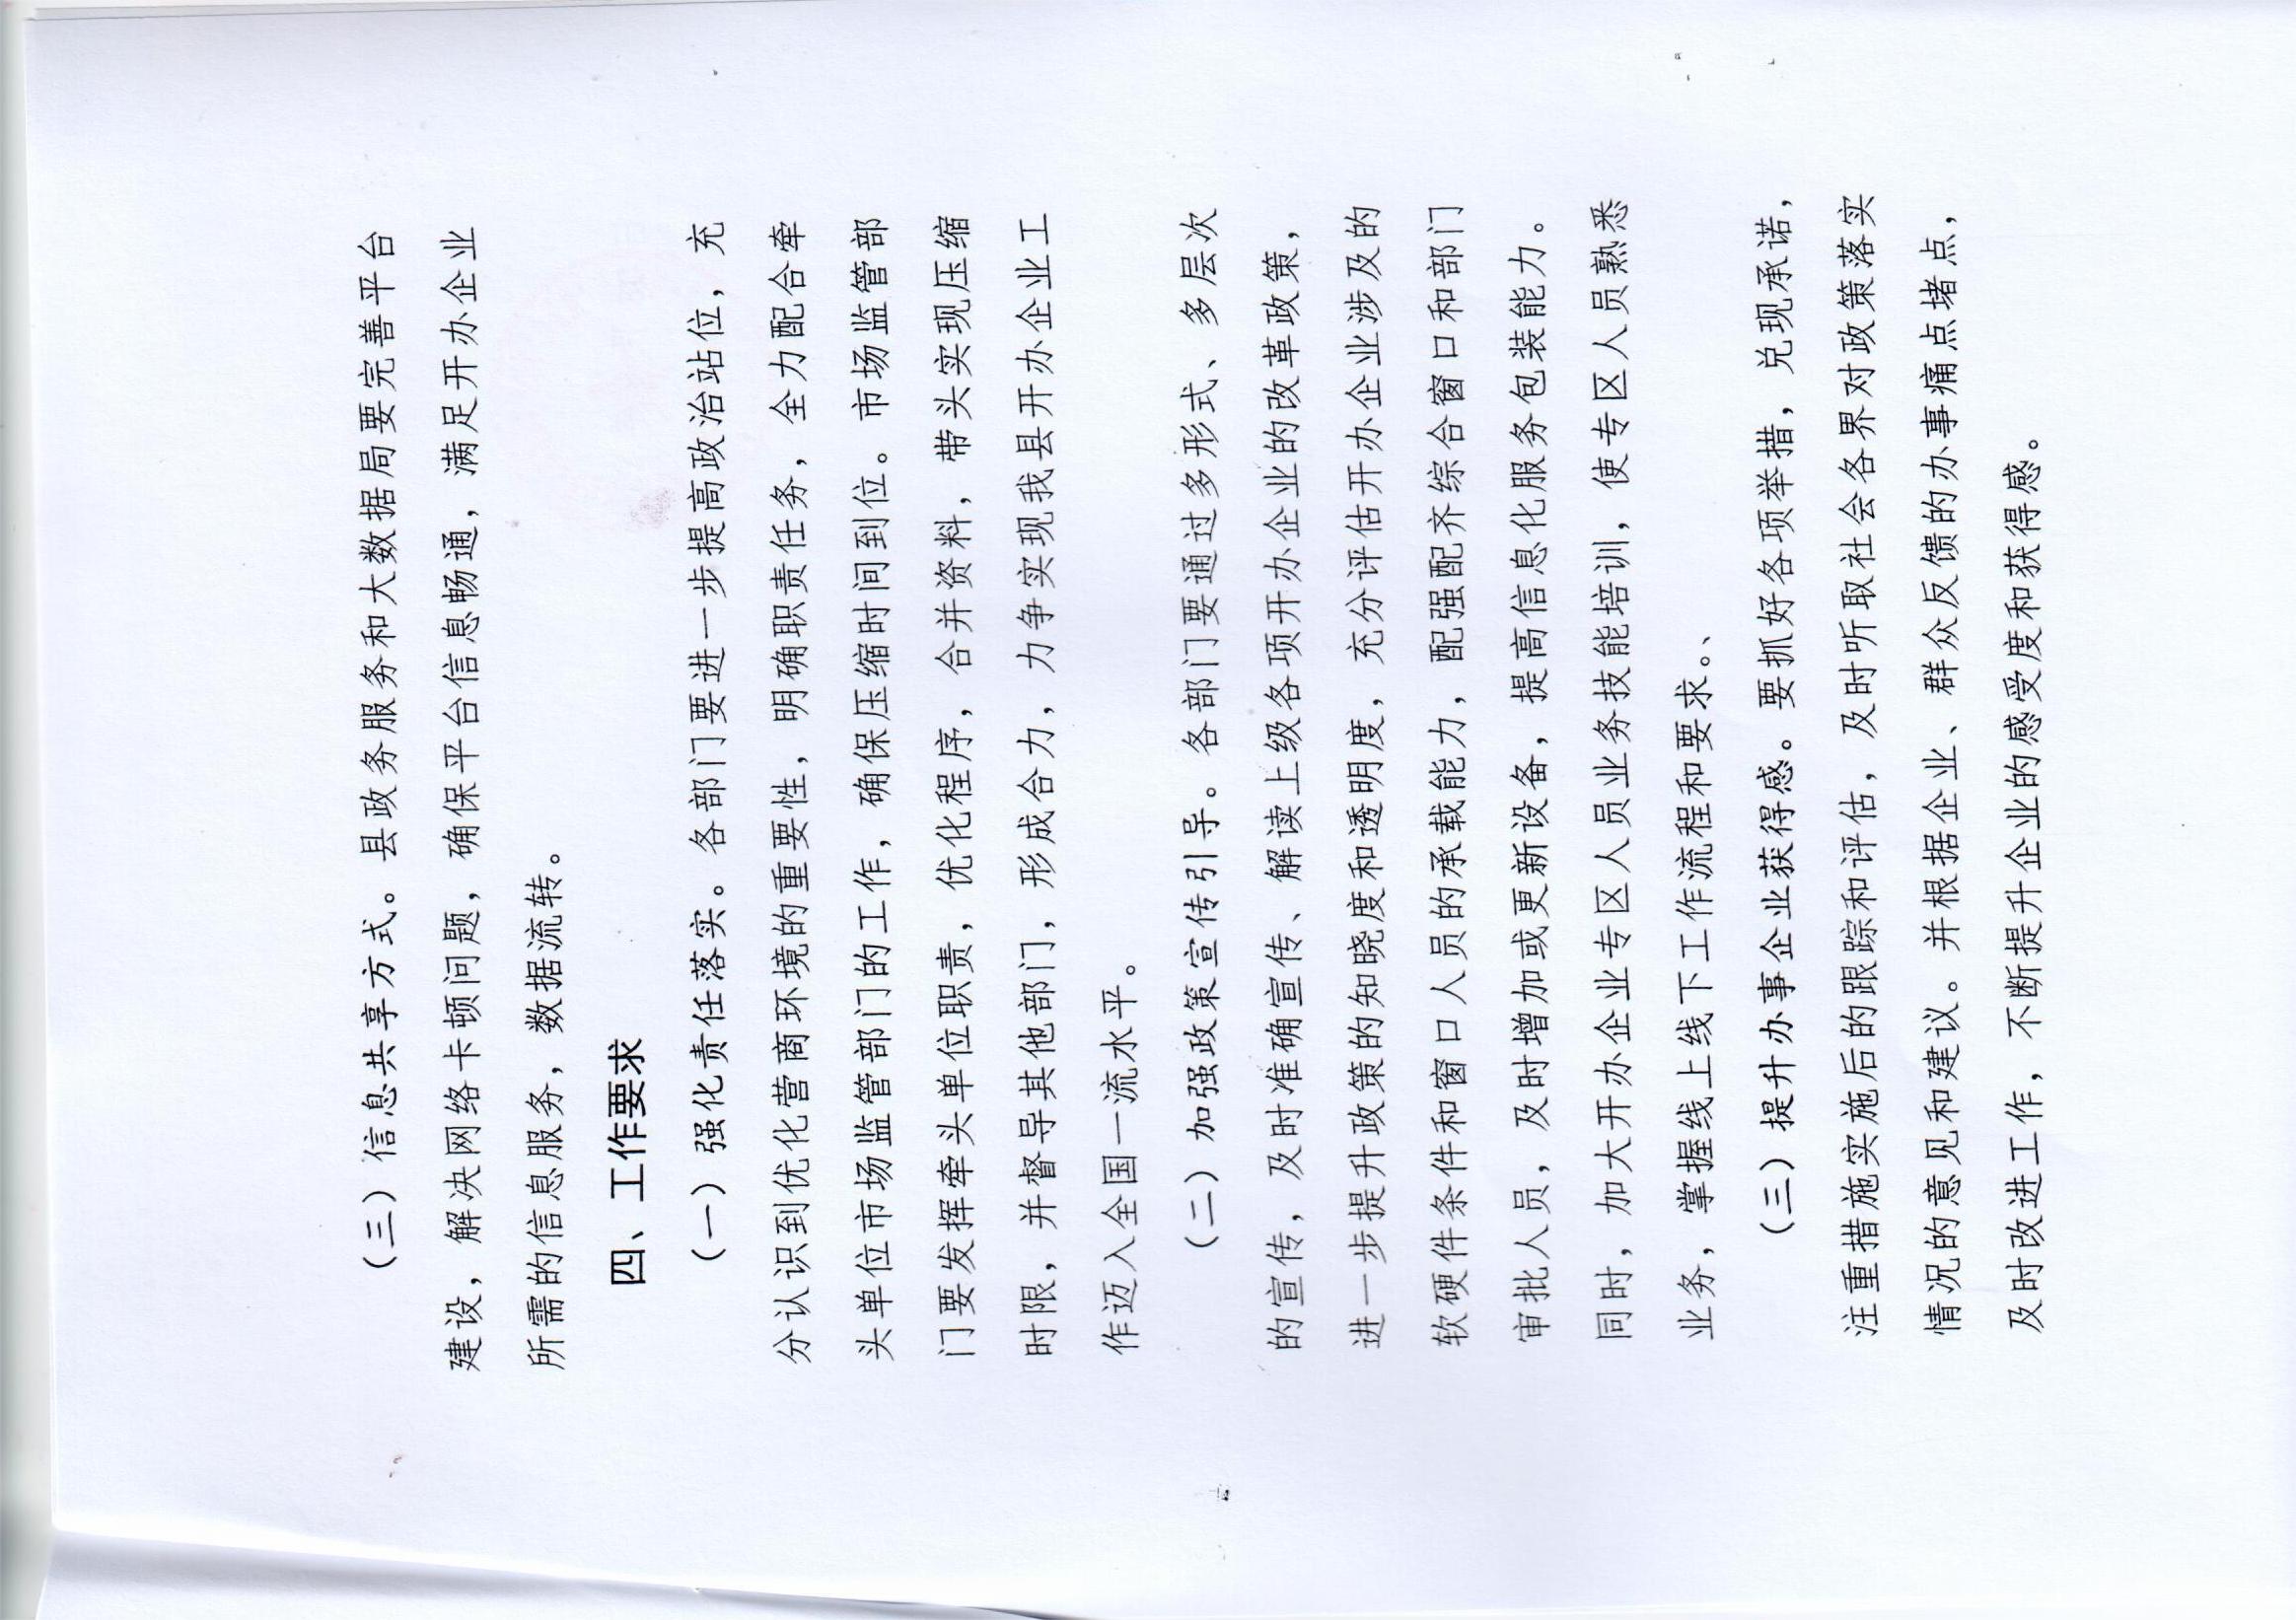 （三）信息共享方式。县政务服务和大数据局要完善平台
建设，解决网络卡顿问题，确保平台信息畅通，满足开办企业
所需的信息服务，数据流转。
四、工作要求
（一）强化责任落实。各部门要进一步提高政治站位，充
分认识到优化营商环境的重要性，明确职责任务，全力配合牵
头单位市场监管部门的工作，确保压缩时间到位。市场监管部
门要发挥牵头单位职责，优化程序，合并资料，带头实现压缩
时限，并督导其他部门，形成合力，力争实现我县开办企业工
作迈入全国一流水平。
（二）加强政策宣传引导。各部门要通过多形式、多层次
的宣传，及时准确宣传、解读上级各项开办企业的改革政策，
进一步提升政策的知晓度和透明度，充分评估开办企业涉及的
软硬件条件和窗口人员的承载能力，配强配齐综合窗口和部门
审批人员，及时增加或更新设备，提高信息化服务包装能力。
同时，加大开办企业专区人员业务技能培训，使专区人员熟悉
业务，掌握线上线下工作流程和要求。、
（三）提升办事企业获得感。要抓好各项举措，兑现承诺，
注重措施实施后的跟踪和评估，及时听取社会各界对政策落实
情况的意见和建议。并根据企业、群众反馈的办事痛点堵点，
及时改进工作，不断提升企业的感受度和获得感。